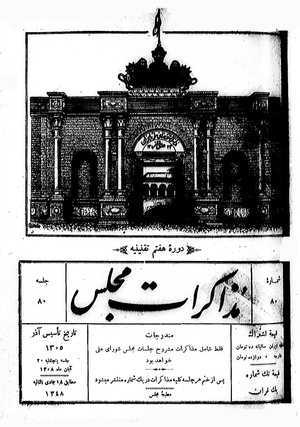 دورهٔ هفتم تقنینیه
جلسه
۸۰
مذاکرات مجلس
شماره
۸۰
تاریخ تأسیس آذر
۱۳۰۵
جلسه پنجشنبه ۳۰
آبان ماه ۱۳۰۸
مطابق ۱۸ جمادی الثانیه
۱۳۴۸
مندرجات
فقط شامل مذاکرات مشروح جلسات مجلس شورای ملی
خواهد بود
پس از ختم هر جلسه کلیه مذاکرات در یک شماره منتشر میشود
مطبعهٔ مجلس
قیمت اشتراک
سالیانه ده تومان
دوازده تومان
قیمت تک شماره
یک قران